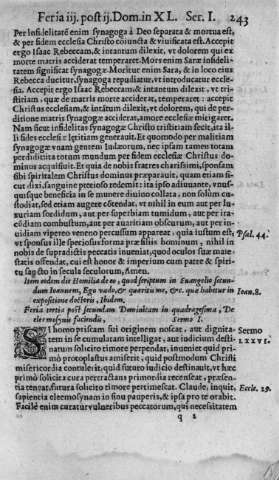 Feria iij. post ij. Dom. in XL. Ser. I. 243
Per infidelitatē enim synagoga à Deo separata & mortua est,
& per fidem ecclesia Christo coiuncta & viuificata est. Accepit
ergo Isaac Rebeccam, & intantum dilexit, vt dolorem qui ex
morte matris acciderat temperaret. Mors enim Saræ infideli-
tatem significat synagogæ. Moritur enim Sara, & in loco eius
Rebecca ducitur, synagoga repudiatur, vt introducatur eccle-
sia. Accepit ergo Isaac Rebeccam, & intantum dilexit, vt tri-
stitiam, quæ de morte matris acciderat, temperaret: accepit
Christus ecclesiam, & intātum dilexit, vt dolorem, qui de per-
ditione matris synagogæ acciderat, amore ecclesiæ mitigaret.
Nam sicut infidelitas synagogæ Christo tristitiam fecit, ita il-
li fides ecclesiæ lętitiam generauit. Et quoniam per malitiam
synagogæ vnam gentem Iudæorum, nec ipsam tamen totam
perdidit: ita totum mundum per fidem ecclesiæ Christus do-
minus acquisiuit. Et quia de nobis fratres charissimi, sponsam
sibi spiritalem Christus dominus præparauit, quam etiam si-
cut dixi, sanguine pretioso redemit: ita ipso adiuuante, vnus-
quisque beneficia in se munere diuino collata, non solum cu-
stodiat, sed etiam augere cōtendat, vt nihil in eum aut per lu-
xuriam sordidum, aut per superbiam tumidum, aut per ira-
cūdiam combustum, aut per auaritiam obscurum, aut per in-
uidiam vipereo veneno percussum appareat: quia iustum est, Psal. 44.
vt sponsus ille speciosus forma præ filiis hominum, nihil in
nobis de supradictis peccatis inueniat, quod oculos suæ maie-
statis offendat, cui est honor & imperium cum patre & spiri-
tu sancto in secula seculorum, Amen.
Item eodem die Homilia de eo, quod scriptum in Euangelio secun-
dum Ioannem, Ego vado, & quæritis me, &c. quæ habetur in Ioan. 8.
expositione doctoris, Ibidem.
Feria tertia post secundam Dominicam in quadragesima, De
eleemosynis faciendis, Sermo I.
SI homo priscam sui originem noscat, aut dignita- Sermo
tem in se cumulatam intelligat, aut iudicium desti- LXXVI.
natum solicito timore perpendat, inueniet quid pri-
mò protoplastus amiserit, quid postmodum Christi
misericordia contulerit, quid futuro iudicio destinauit, vt hæc
primò solicita cura pertractans primordia recenseat, præsen-
tia teneat, futura solicito timore pertimescat. Claude, inquit, Eccle. 29.
sapientia eleemosynam in sinu pauperis, & ipsa pro te orabit.
Facilè enim curatur vulneribus peccatorum, qui necessitatem
q 2